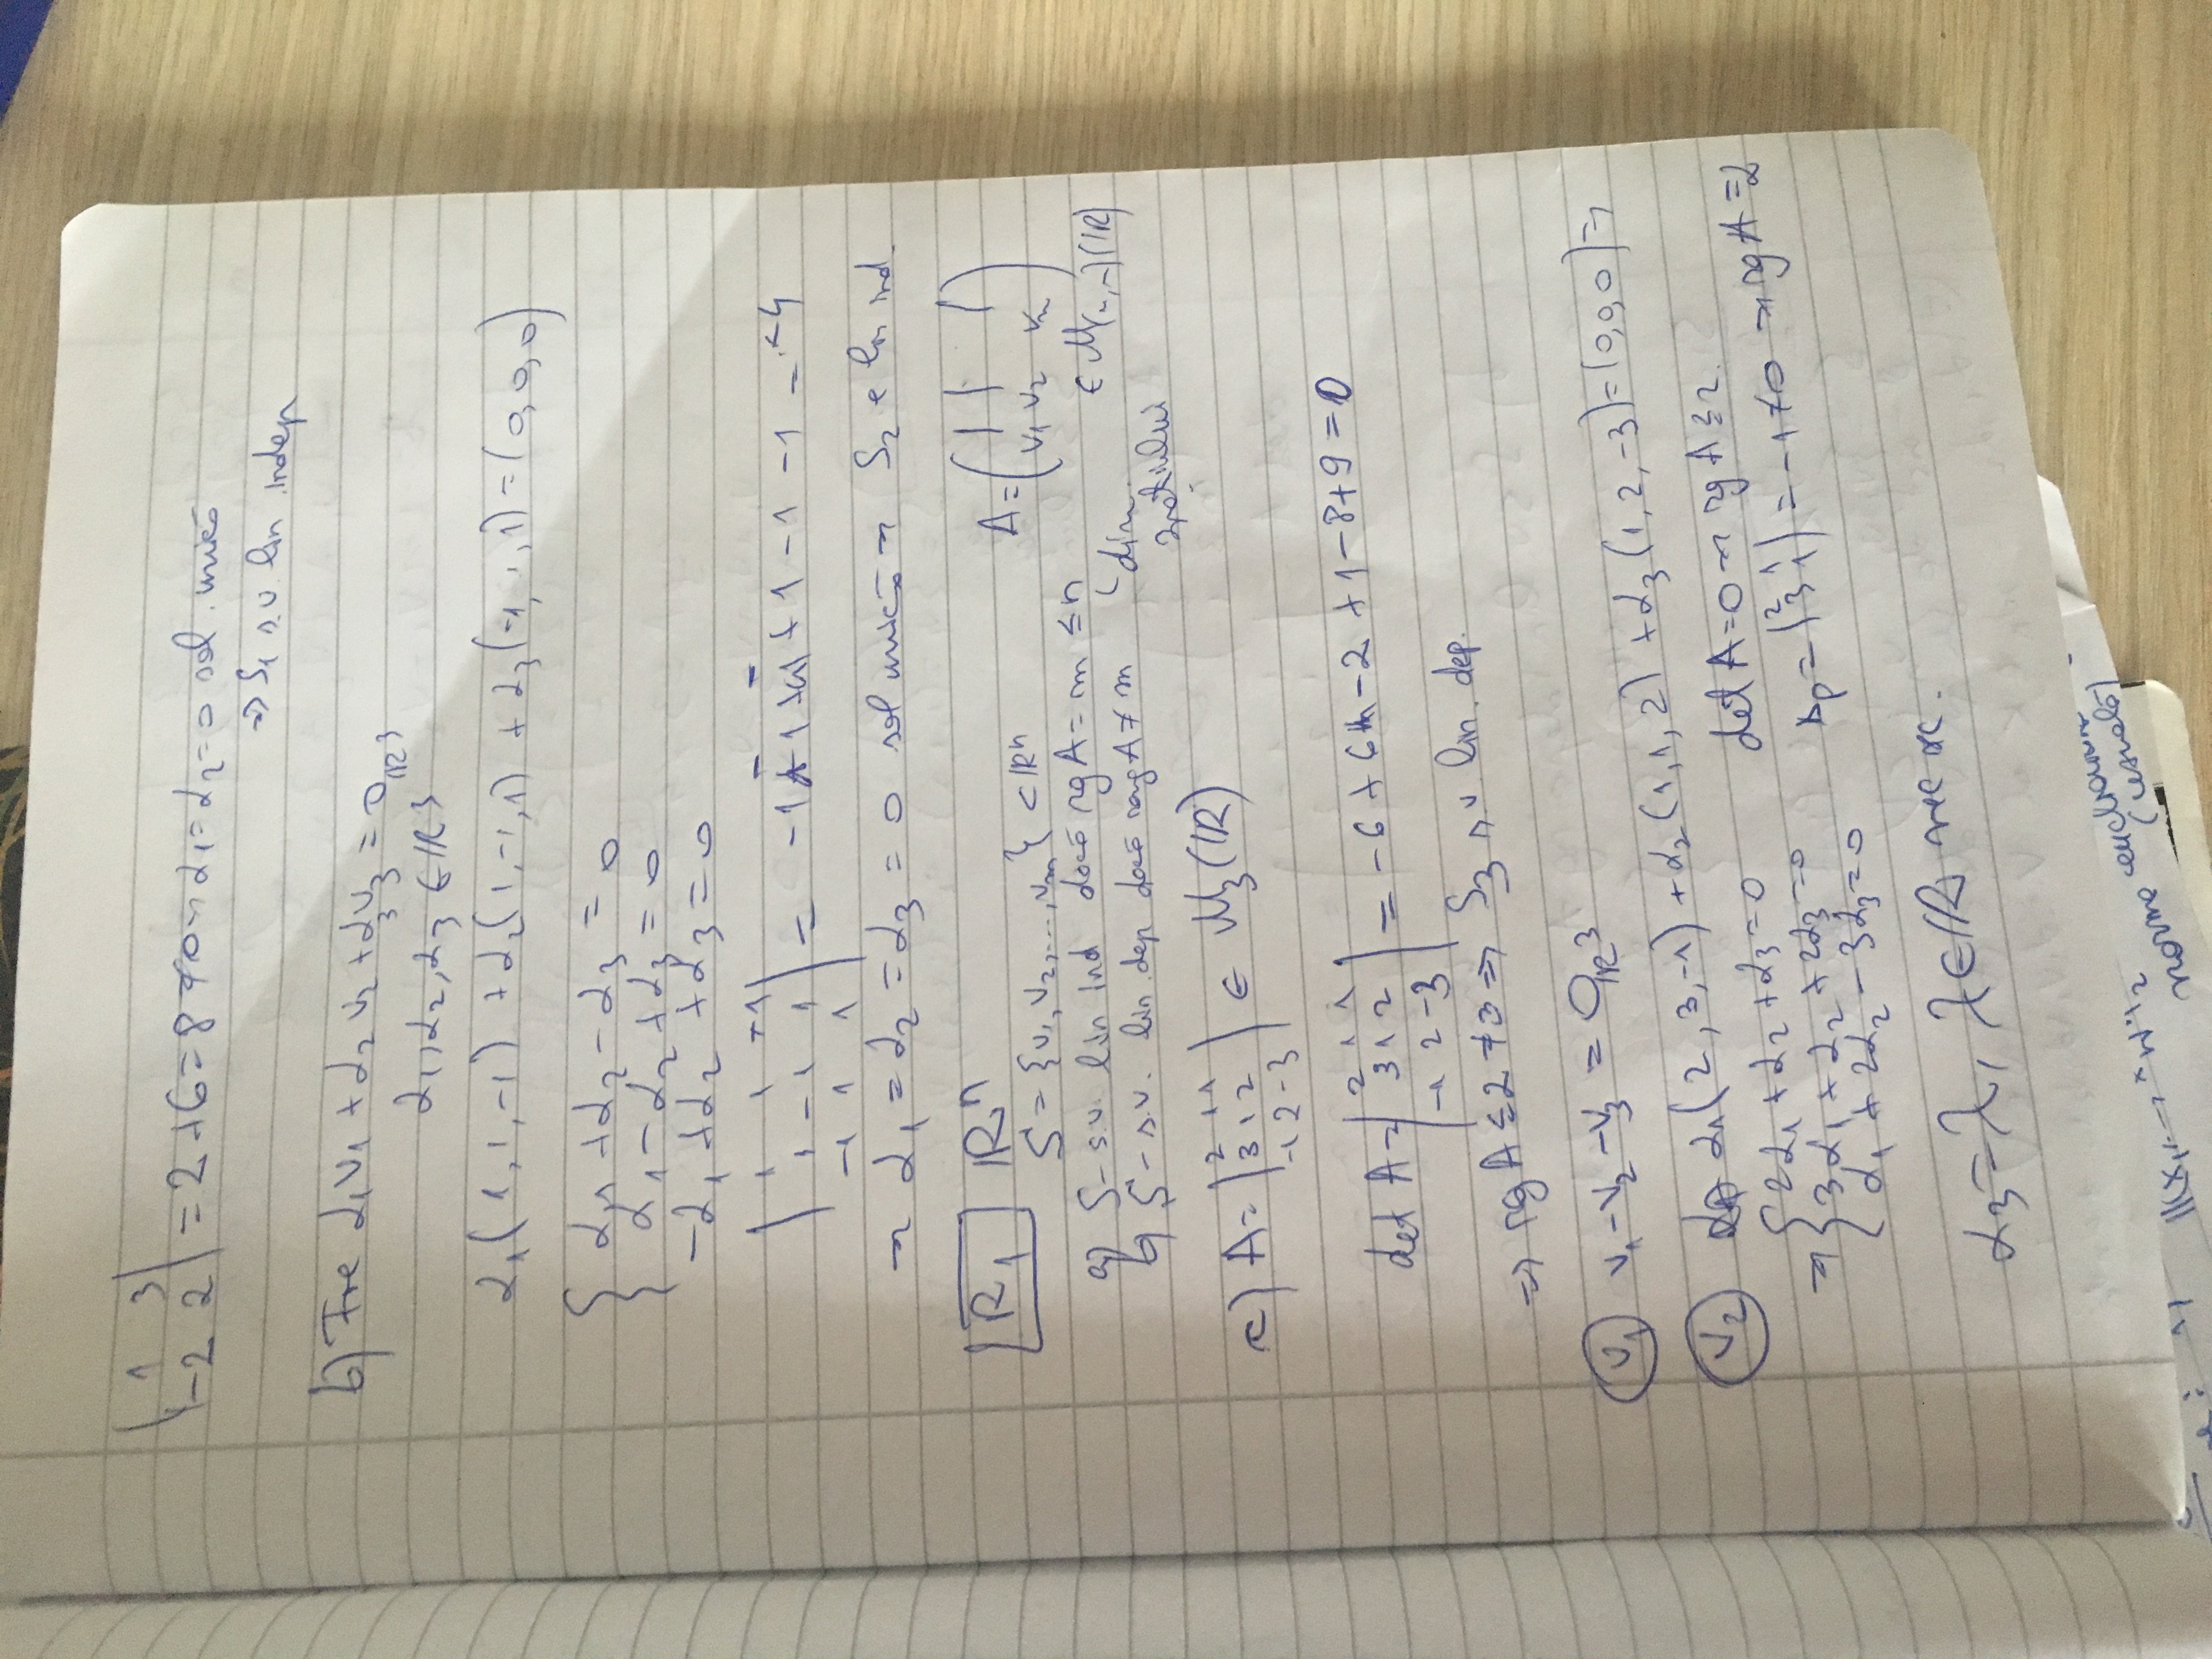 | 1 3 |
| -2 2 | = 2+6 = 8 ≠ 0 ⇒ α₁ = α₂ = 0 sol. unică
⇒ S₁ s.v. lin indep
b) Fie α₁v₁ + α₂v₂ + α₃v₃ = 0_ℝ³
α₁, α₂, α₃ ∈ ℝ³
α₁(1,1,-1) + α₂(1,-1,1) + α₃(-1,1,1) = (0,0,0)
{ α₁ + α₂ - α₃ = 0
α₁ - α₂ + α₃ = 0
-α₁ + α₂ + α₃ = 0
| 1 1 -1 |
| 1 -1 1 | = -1 - 1 - 1 + 1 - 1 - 1 = -4
| -1 1 1 |
⇒ α₁ = α₂ = α₃ = 0 sol unică ⇒ S₂ e lin ind.
R₁ ℝⁿ
S = {v₁, v₂, ..., vₘ} ⊂ ℝⁿ
A = ( | | | )
( v₁ v₂ )
a) S - s.v. lin ind dacă rg A = m ≤ n
b) S - s.v. lin. dep dacă rang A ≠ m
dim. spațiului
c) A = | 2 1 1 |
| 3 1 2 | ∈ M₃(ℝ)
| -1 2 -3 |
det A = | 2 1 1 |
| 3 1 2 | = -6 + 6 - 2 + 1 - 8 + 9 = 0
| -1 2 -3 |
⇒ rg A ≤ 2 ≠ 3 ⇒ S₃ s.v. lin. dep.
V₁ v₁ - v₂ - v₃ = 0_ℝ³
V₂ α₁(2,3,-1) + α₂(1,1,2) + α₃(1,2,-3) = (0,0,0) ⇒
⇒ { 2α₁ + α₂ + α₃ = 0
3α₁ + α₂ + 2α₃ = 0
α₁ + 2α₂ - 3α₃ = 0
det A = 0 ⇒ rg A ≤ 2.
Δp = | 2 1 |
| 3 1 | = -1 ≠ 0 ⇒ rg A = 2
α₃ = λ, λ ∈ ℝ nec sec.
norma euclidiana
(uzuală)